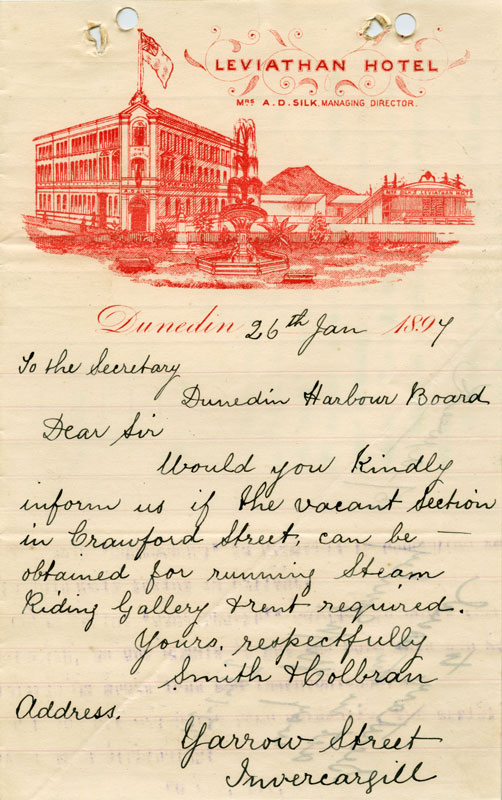 LEVIATHAN HOTEL
MRS A.D. SILK. MANAGING DIRECTOR.
Dunedin 26th Jan 1897
To the Secretary
Dunedin Harbour Board
Dear Sir
Would you Kindly
inform us if the vacant Section
in Crawford Street, can be —
obtained for running Steam
Riding Gallery & rent required.
Yours, respectfully
Smith & Colbran
Address.
Yarrow Street
Invercargill